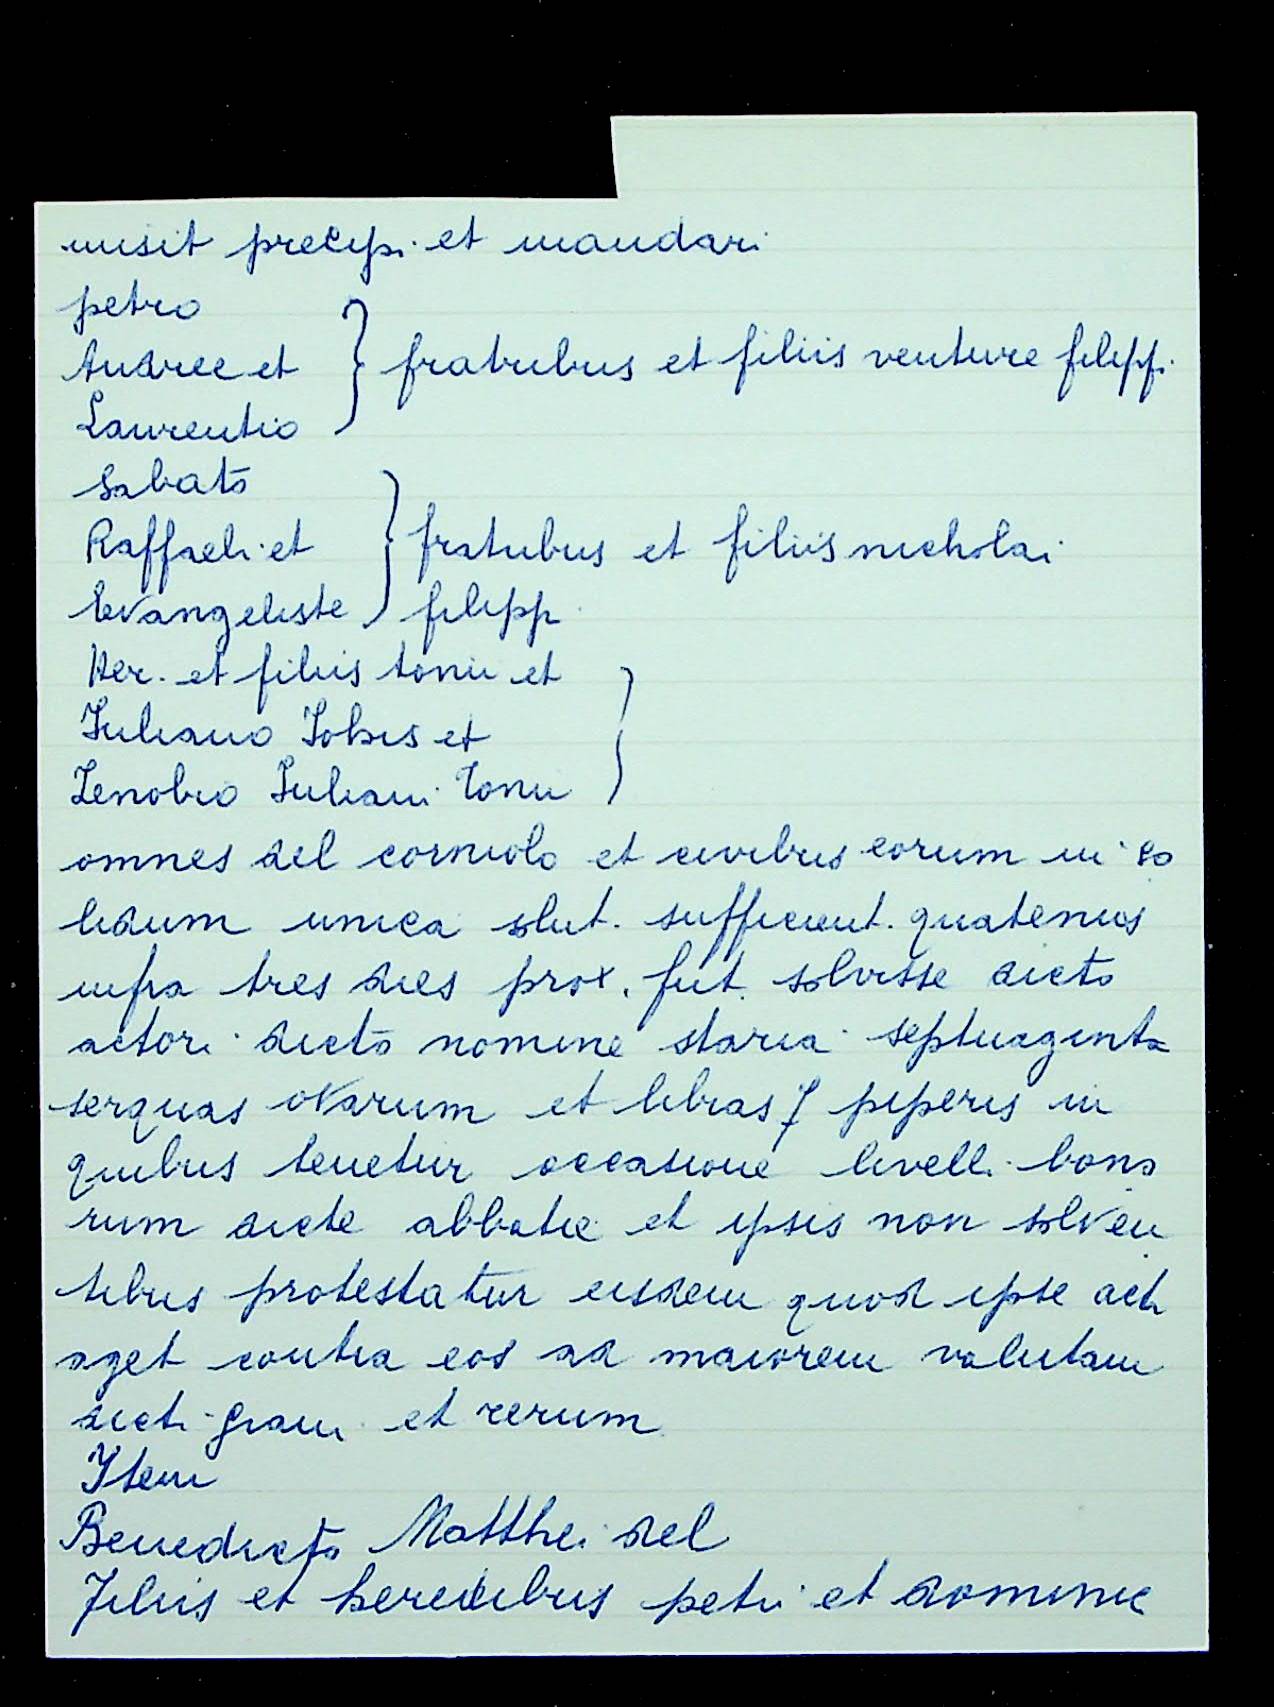 misit precipi et mandari
petro
Andree et } fratribus et filiis venture filippi
Laurentio
Sabato
Raffaeli et } fratribus et filiis nicholai
Evangeliste filipp
Her. et filiis tonii et
Juliano Jobis et
Zenobio Juliani Tonii }
omnes del corniolo et civibus eorum in so
lidum unica solut. sufficient. quatenus
infra tres dies prox. fut. solvisse dicto
actori dicto nomine staria septuaginta
serquas ovarum et libras 7 piperis in
quibus tenetur occasione livelli bono
rum dicte abbatie et ipsis non solven
tibus protestatur eisdem quod ipse acti
aget contra eos ad maiorem valutam
dicti grani et rerum
Item
Benedicto Matthei del
filiis et heredibus petri et dominic